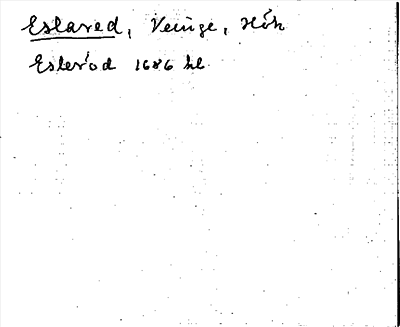 Eslared, Veinge, Höh
Esleröd 1686 hl